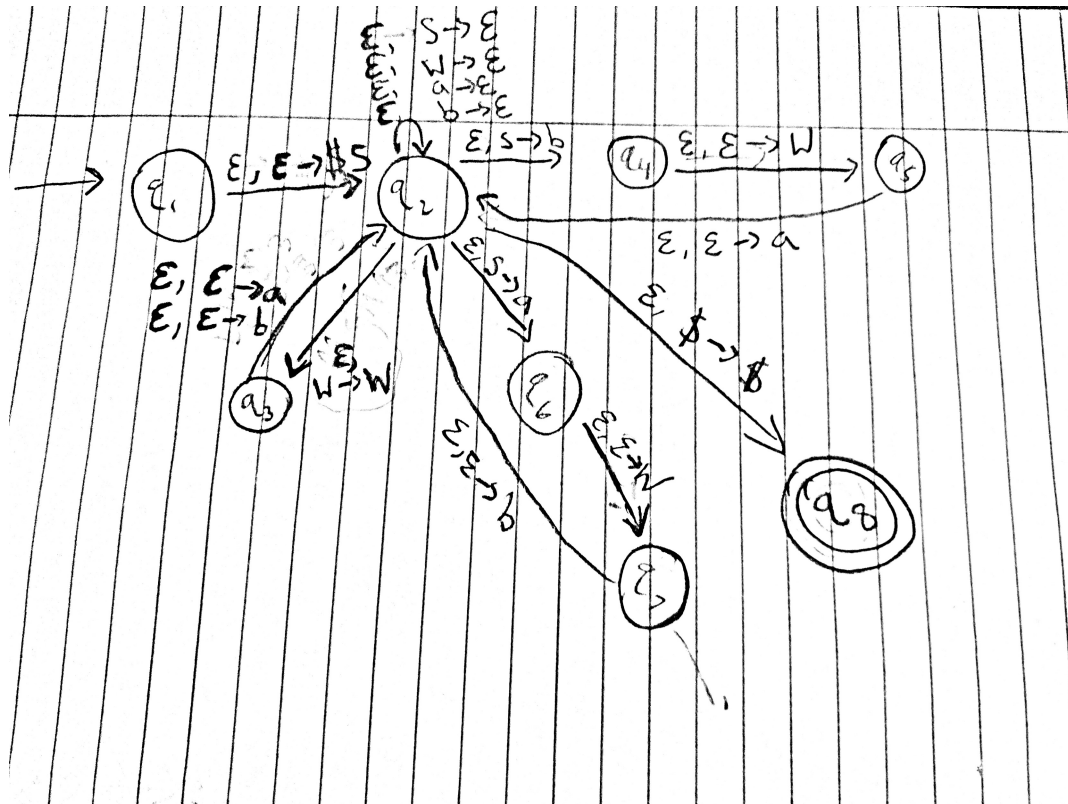 ε, S→ε
ε, M→ε
ε, a→ε
ε, q→ε
q1
ε, ε→$S
q2
ε, S→b
q4
ε, ε→M
q5
ε, ε→a
ε, ε→a
ε, ε→b
q3
ε,
M→M
ε, S→a
q6
ε, ε→M
q7
ε, ε→b
ε, $→$
q8